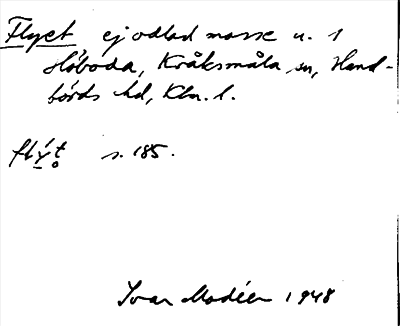 Flyet ej odlad mosse u. 1
Slöboda, Kråksmåla sn, Hand-
börds hd, Klm. l.
flýt s. 185.
Ivar Modéer 1948